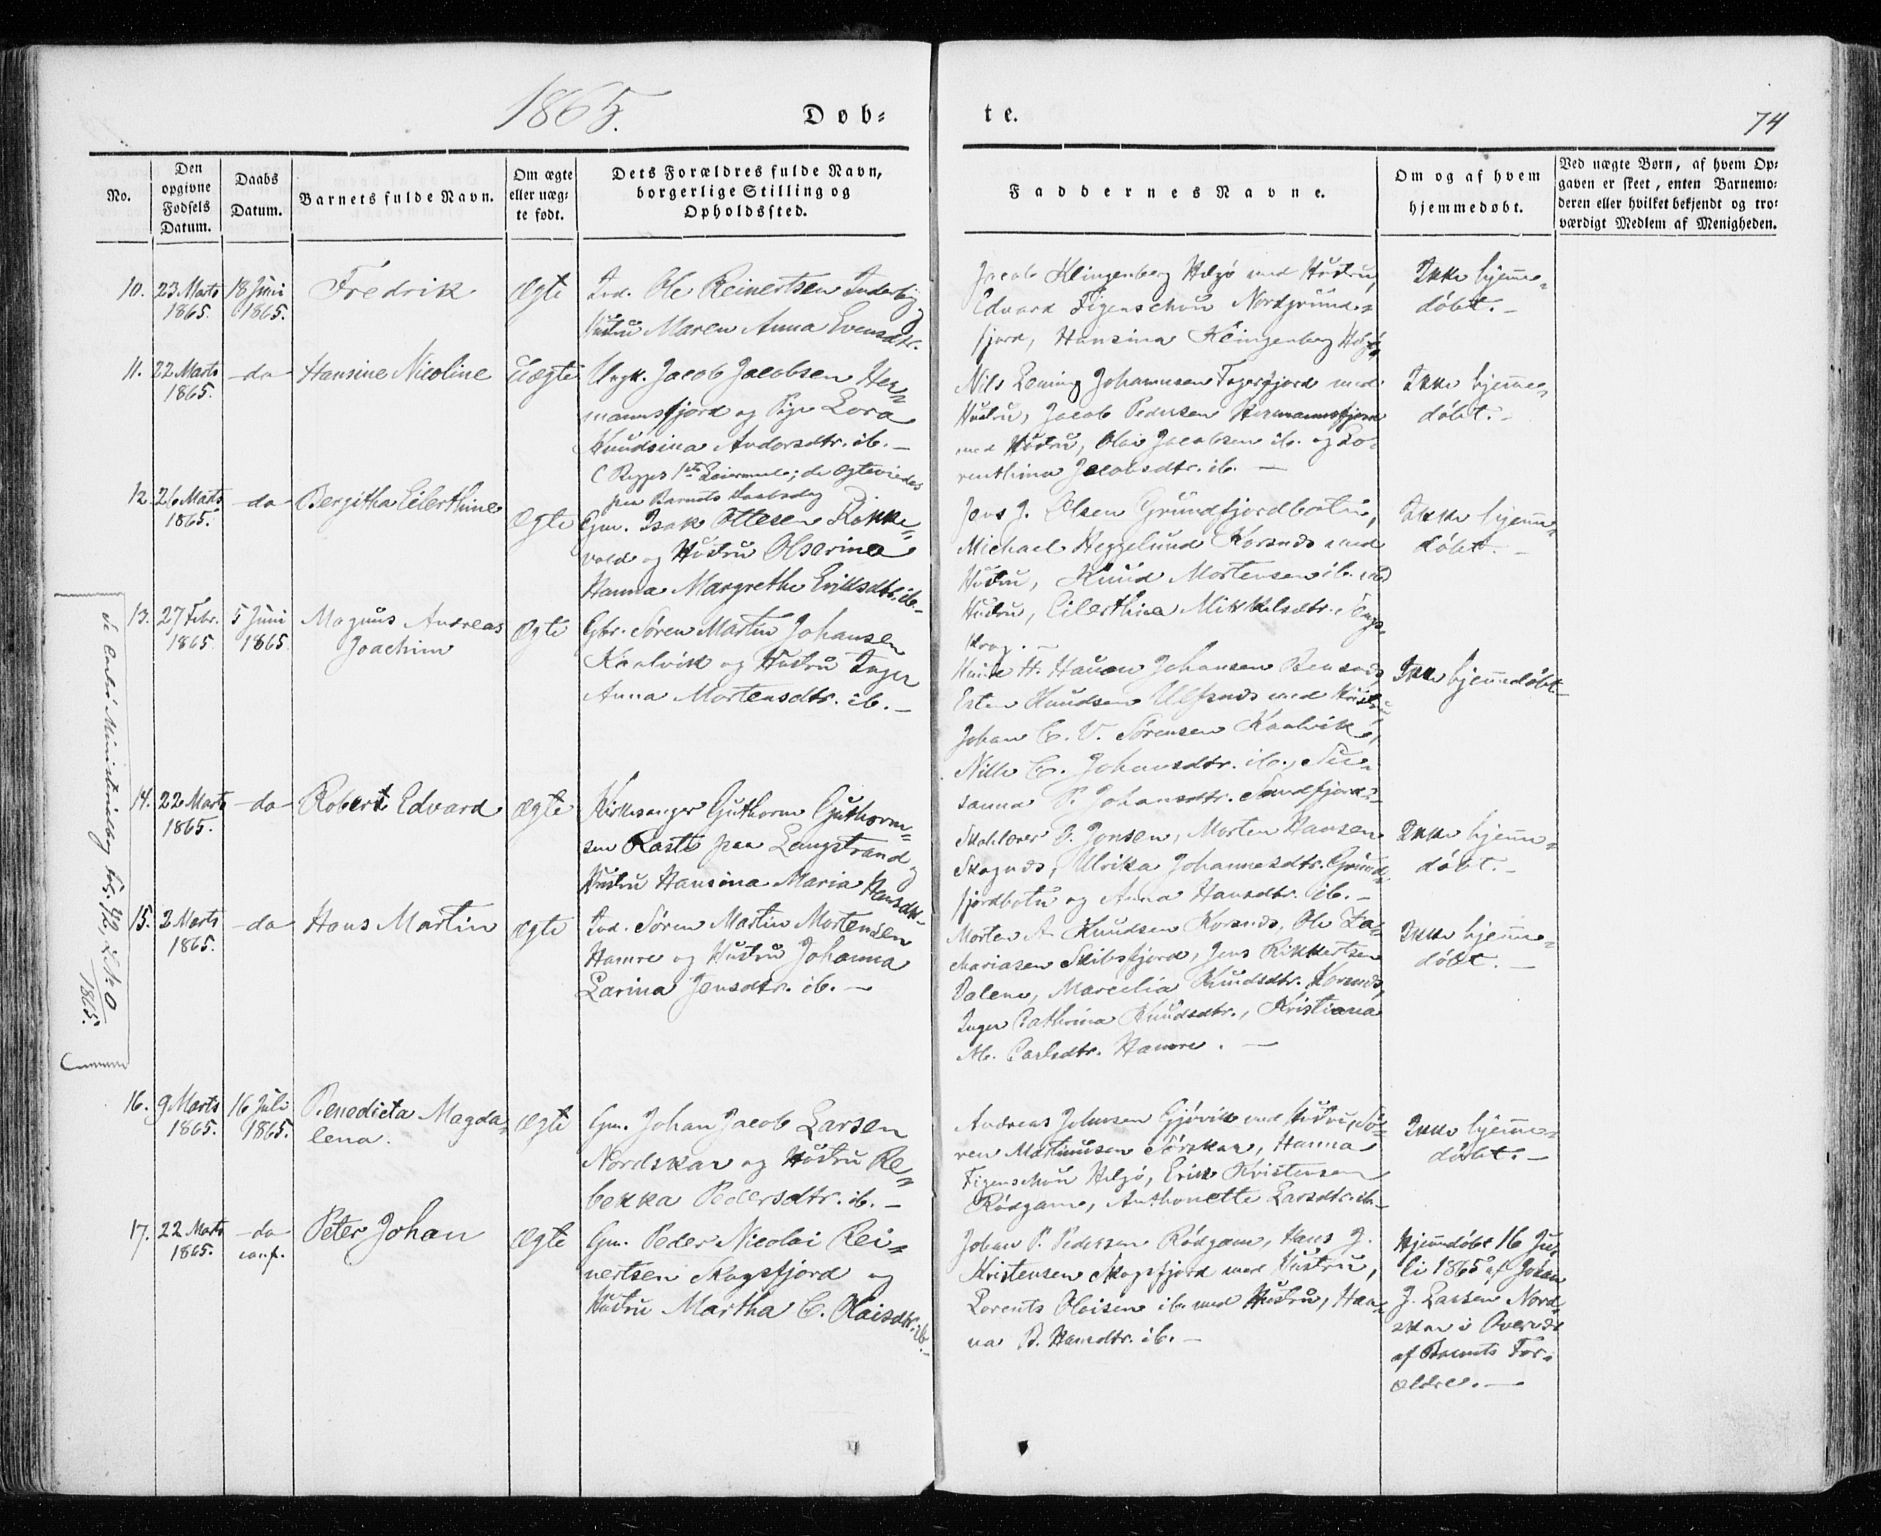 1865.
Døb-
te.
74
No.
Den opgivne Fødsels Datum.
Daabs Datum.
Barnets fulde Navn.
Om ægte eller uægte født.
Dets Forældres fulde Navn, borgerlige Stilling og Opholdssted.
Faddernes Navne.
Om og af hvem hjemmedøbt.
Ved uægte Børn, af hvem Opgaven er skeet, enten Barnemoderen eller hvilket bekjendt og troværdigt Medlem af Menigheden.
10. 23 Marts 1865.
18 Juni 1865.
Fredrik
Ægte
Ind. Ole Reinertsen
Hustru Maren Anna Evensdtr.
Jacob Klingenberg Helgö med Hustru,
Edvard Figenschou Nordgrund-
fjord, Hansina Klingenberg Helgö
Ikke hjemme-
döbt. -
11. 22 Marts 1865.
-do-
Hansine Nicoline
Uægte
Ungk. Jacob Jacobsen Her-
mannsfjord og Pige Lora
Knudsina Andersdtr. ib. -
(Begges 1ste Leiermaal; de ægteviedes
paa Barnets Daabsdag
Nils Lening Johannsen Fagerfjord med
Hustru, Jacob Pedersen Hermannsfjord
med Hustru, Olai Jacobsen ib. og Lo-
renthina Jacobsdtr. ib. -
Ikke hjemme-
döbt. -
12. 26 Marts 1865.
-do-
Bergitha Eilerthine
Ægte
Gm. Isak Ottesen Rökke-
vold og Hustru Olserina
Hanna Margrethe Eriksdtr. ib. -
Jens J. Olsen Grundfjordbotn,
Michael Heggelund Korsnes med
Hustru, Knud Mortensen ib. med
Hustru, Eilerthina Mikkelsdtr.
krog. -
Ikke hjemme-
döbt. -
13. 27 Febr. 1865
5 Juni 1865
Magnus Andreas
Joachim
Ægte
Gbr. Sören Martin Johansen
Kaalvik og Hustru Inger
Anna Mortensdtr. ib. -
H. Hauan Johansen
Esten Knudsen Ulfsnes med Hustru
Johan C. V. Sörensen Kaalvik,
Nille C. Johansdtr. ib., Su-
sanna P. Johansdtr. Sandfjord. -
Ikke hjemmedöbt
14. 22 Marts 1865.
-do-
Robert Edvard
Ægte
Kirkesanger Guthorm Guthorm-
sen Rasti paa Langstrand og
Hustru Hansina Maria Hansdtr.
Skolelærer J. Jonsen, Morten Hansen
Skognes, Ulrika Johannesdtr. Grund-
fjordbotn og Anna Hansdtr. ib. -
Ikke hjemme-
döbt. -
15. 2 Marts 1865.
-do-
Hans Martin
Ægte
Ind. Sören Martin Mortensen
Hamre og Hustru Johanna
Larina Jensdtr. ib. -
Morten A. Knudsen Korsnes, Ole Za-
chariasen Skibsfjord, Jens Rikkertsen
Dalene, Marcelia Knudsdtr. Korsnes,
Inger Cathrina Knudsdtr., Kristiana
M. Carlsdtr. Hamre. -
Ikke hjemme-
döbt. -
Se Carlsö Ministerialbog
1865.
16. 9 Marts 1865.
16 Juli 1865.
Benedicta Magda-
lena.
Ægte
Gm. Johan Jacob Larsen
Nordskar og Hustru Re-
bekka Pedersdtr. ib. -
Andreas Johnsen Gjövik med Hustru, Sö-
ren Mathiusen Sörskar, Hanna
Figenschou Helgö, Erik Kristensen
Rödgame, Anthonette Larsdtr. ib. -
Ikke hjemme-
döbt. -
17. 22 Marts 1865.
-do- conf.
Peter Johan
Ægte
Gm. Peder Nicolai Rei-
nertsen Skogsfjord og
Hustru Martha C. Olaisdtr. ib. -
Johan P. Pedersen Rödgam, Hans J.
Kristensen Skogsfjord med Hustru,
Lorents Olaisen ib. med Hustru, Han-
na B. Hansdtr. ib. -
Hjemmedöbt 16 Ju-
li 1865 af Johan
J. Larsen Nord-
skar i Overvær
af Barnets For-
ældre. -